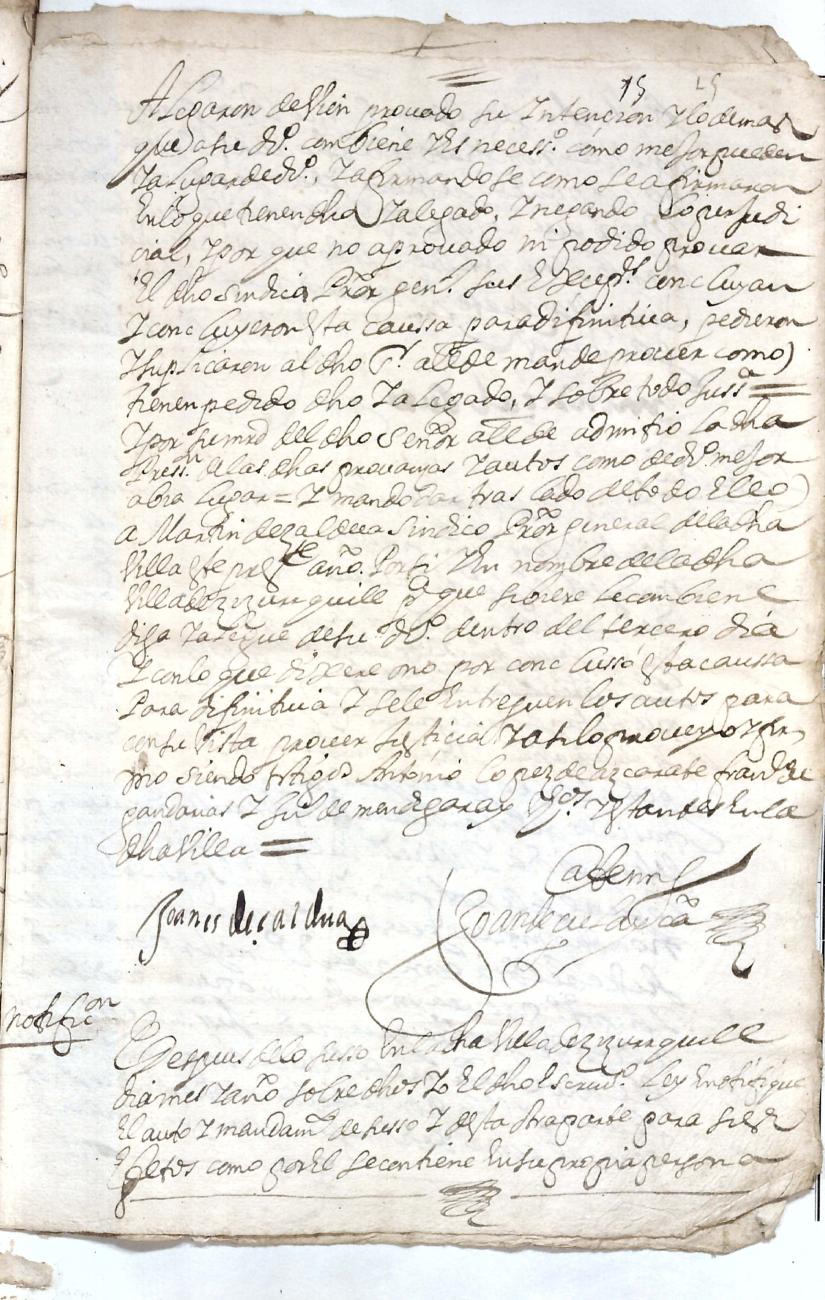 15 15
Alegaron de vien provado su Intencion Y lo demas
que a su dro. combiene Y es necess.o como mejor pueden
Ya lugar de dro., Y afirmandose como se afirmaron
En lo que tienen dho Y alegado, Y negando lo perjudi
cial, Y por que no a provado ni podido provar
El dho sindico Pror gen.l sus Excep.s concluyan
Y concluyeron Esta caussa para difinitiva, pedieron
Y suplicaron al dho S.r allde mande prover como
tienen pedido dho Y alegado, Y sobre todo Juss.a =
Y por su mrd del dho Señor allde admitio la dha
Press.n de las dhas provanzas Y autos como de dro. mejor
abia lugar = Y mando dar traslado de todo Ello
a Martin de zaldua Sindico Pror general de la dha
Villa Este press.te año. Por si Y En nombre de la dha
Villa de zizurquill p.a que si viere le combiene
diga Y alegue de su dro. dentro del tercero dia
Y con lo que dixere o no por conclusso Esta caussa
Para difinitiva Y se le Entreguen los autos para
con su vista prover Justicia Y asi lo proveyo Y fir
mo siendo testigos Antonio lopez de azcarate fran.co de
gandarias Y Ju.o de mendizaraz V.os Y Estantes En la
dha Villa =
Joanes de çaldua
Ante mi
Joan de
notific.on
Despues de lo susso En la dha Villa de zizurquill
dia mes Y año sobre dhos Yo El dho Escriv.o ley E notifique
El auto Y mandam.to de susso Y desta otra parte para sus
Efetos como por El se contiene En su propia persona